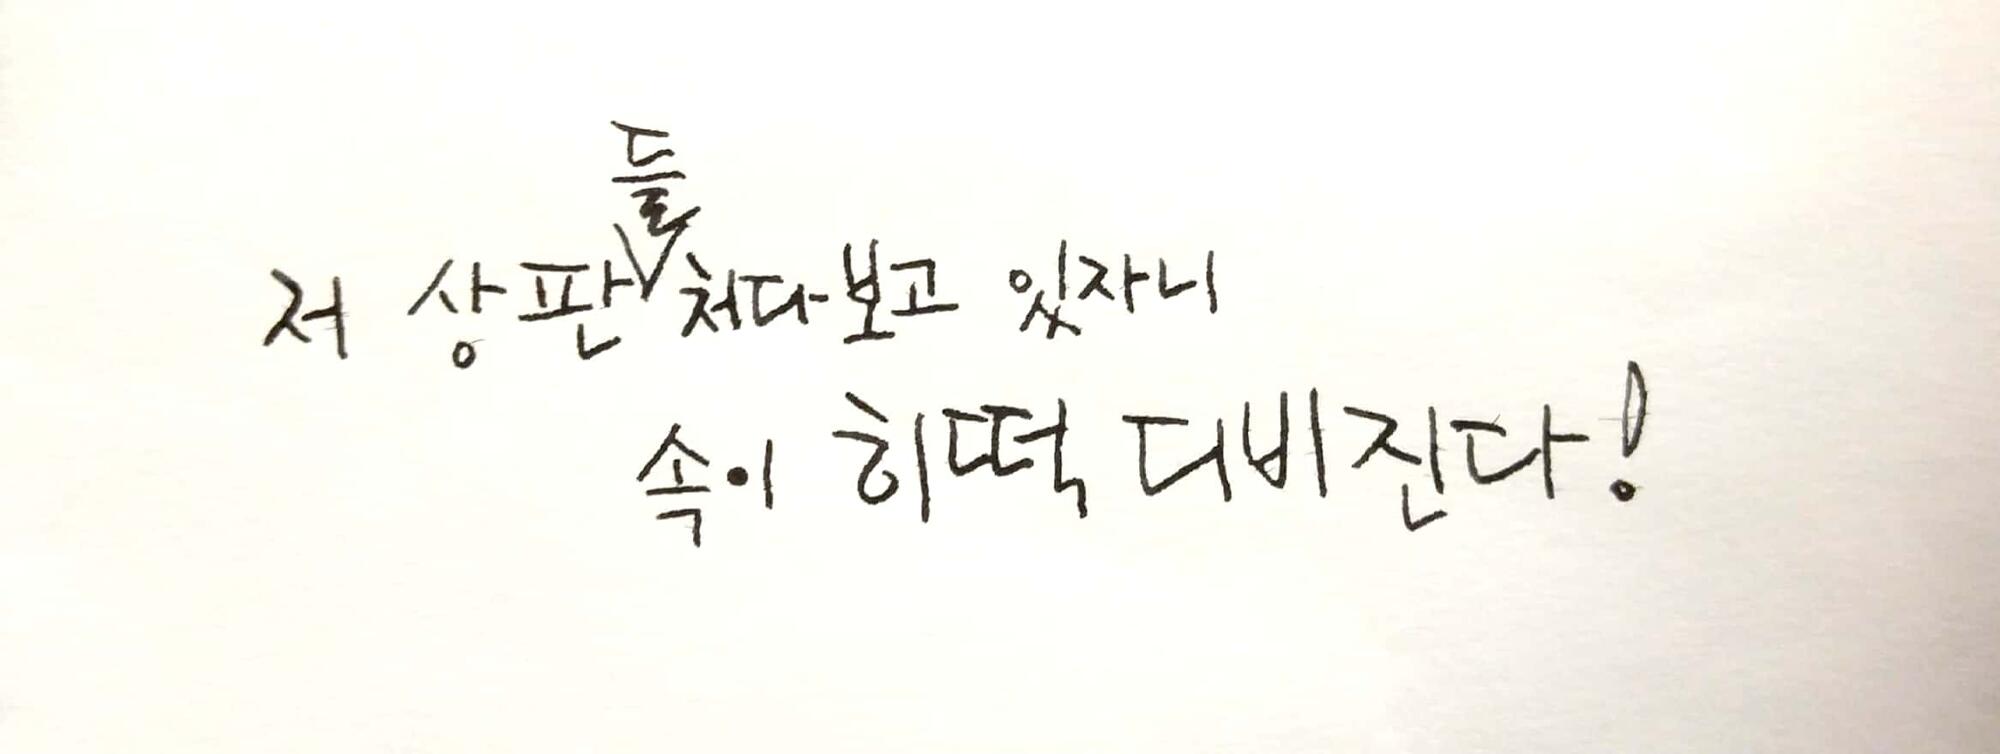 저 상판들 처다보고 있자니
속이 히떡 디비진다!